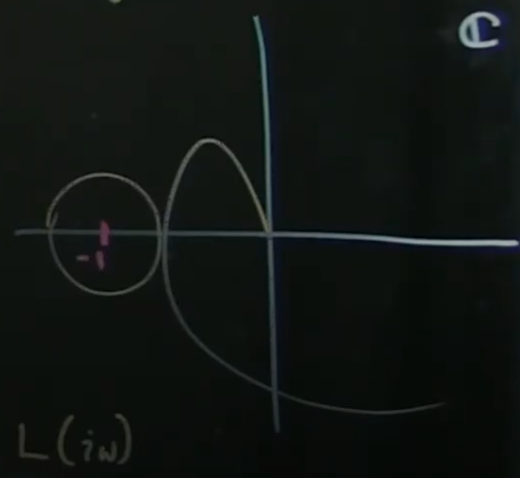 ℂ
-1
L(iω)